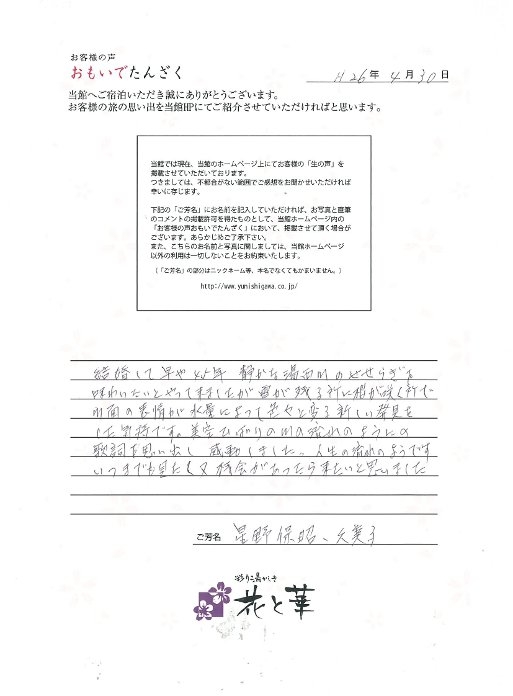 お客様の声
おもいでたんざく
H 26年 4月 30日
当館へご宿泊いただき誠にありがとうございます。
お客様の旅の思い出を当館HPにてご紹介させていただければと思います。
当館では現在、当館のホームページ上にてお客様の「生の声」を
掲載させていただいております。
つきましては、不都合がない範囲でご感想をお聞かせいただければ
幸いに存じます。
下記の「ご芳名」にお名前を記入していただければ、お写真と直筆
のコメントの掲載許可を得たものとして、当館ホームページ内の
「お客様の声おもいでたんざく」において、掲載させて頂く場合が
ございます。あらかじめご了承下さい。
また、こちらのお名前と写真に関しましては、当館ホームページ
以外の利用は一切しないことをお約束いたします。
(「ご芳名」の部分はニックネーム等、本名でなくてもかまいません。)
http://www.yunishigawa.co.jp/
結婚して早や45年 静かな湯西川のせせらぎを
味わいたいとやって来ましたが雪が残る所に桜が咲く所で
川面の表情が水量によって変る新しい発見を
した気持です。美空ひばりの川の流れのようにの
歌詞を思い出し 感動しました。人生の流れのようです
いつまでも又機会があったら来たいと思いました
ご芳名 星野保昭、久美子
彩り湯かしき
花と華